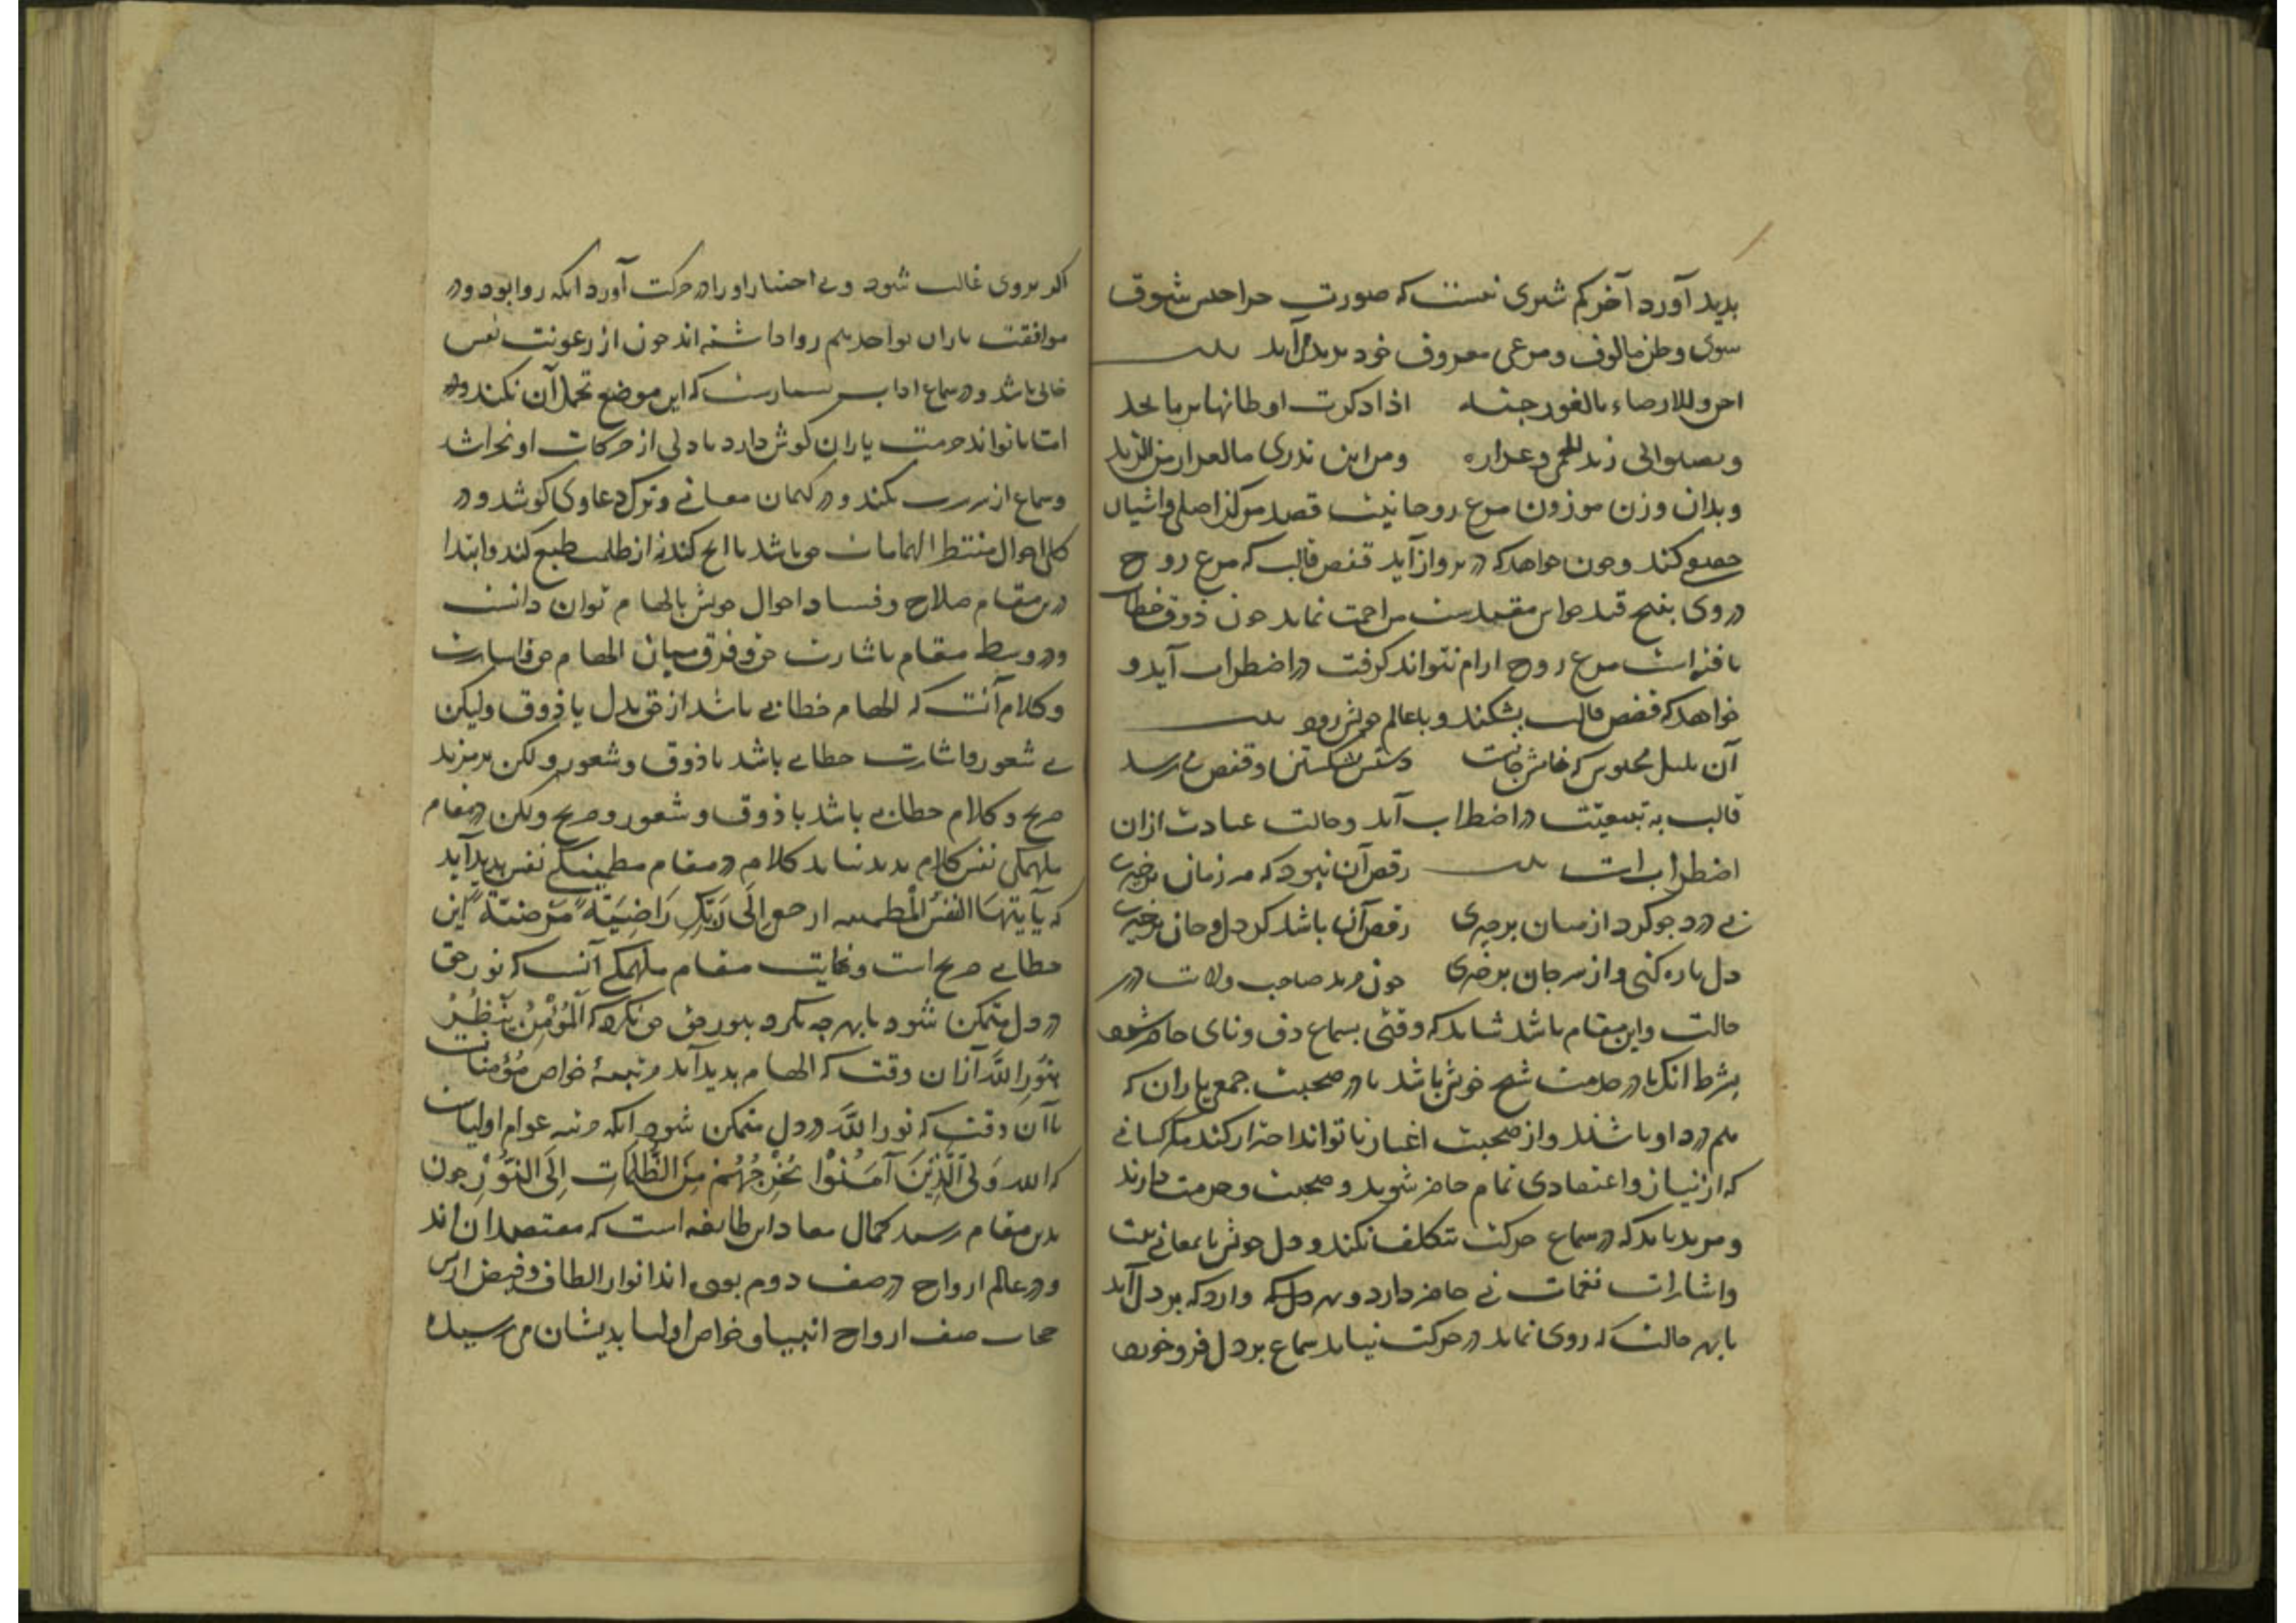 بدید آورد آخر کم شتری نیست که صورت حداحدش بشوق
سوی وطن مالوف و مرعی معروف خود بدید آید بیت
احن للارضاء بالغور جنة اذا ذکرت اوطانها بربا نجد
وتصبوا الی رند الحمی وعراره ومن این تدری ما العرار من الرند
و بدان وزن موزون مرغ روحانیت قصد مرکز اصلی و آشیان
حقیقی کند و چون خواهد که در پرواز آید قفص قالب که مرغ روح
در وی بپنج قید حواس مقیدست مزاحمت نماید چون ذوق خطاب
یافته است مرغ روح آرام نتواند گرفت در اضطراب آید و
خواهد که قفص قالب بشکند و با عالم خویش رود بیت
آن بلبل محبوس که نامش جانست دستش بشکستن قفص می نرسد
قالب به تبعیت در اضطراب آید و حالت عبادت ازان
اضطراب است بیت رقص آن نبود که هر زمان برخیزی
بی درد چو گرد از میان برخیزی رقص آن باشد کز دل و جان برخیزی
دل پاره کنی و از سر جان برخیزی چون مرید صاحب ولایت در
حالت و این مقام باشد شاید که وقتی بسماع دف و نای حاضر شود
بشرط آنک یا در خدمت شیخ خویش باشد یا در صحبت جمع یاران که
هم درد او باشند و از صحبت اغیار تا تواند احتراز کند مگر کسانی
که از نیاز و اعتقادی تمام حاضر شوند و صحبت و حرمت دارند
و مرید باید که در سماع حرکت بتکلف نکند و دل خویش با معانی بیت
و اشارات نغمات نی حاضر دارد و بهر وارد که بر دل آید
یا بهر حالت که روی نماید در حرکت نیاید سماع بر دل فرو خورد
اگر بروی غالب شود و بی اختیار او را در حرکت آورد آنکه روا بود و در
موافقت یاران تواجد هم روا داشته اند چون از رعونت نفس
خالی باشد و در سماع اداب بسیارست که این موضع تحمل آن نکند و در
اما تا تواند حرمت یاران گوش دارد تا دلی از حرکات او نخراشد
و سماع از سر نکند و در کتمان معانی و ترک دعاوی کوشد و در
کل احوال منتظر الهامات حق باشد تا انچ کند نه از طلب طبع کند و ابتدا
درین مقام صلاح و فساد احوال خویش بالهام توان دانست
و در وسط مقام باشارت حق و فرق میان الهام حق و اشارت
و کلام آنست که الهام خطابی باشد از حق بدل با ذوق ولیکن
بی شعور و اشارت خطابی باشد با ذوق و شعور ولکن برمز نه
صریح و کلام خطابی باشد با ذوق و شعور و صریح ولکن در مقام
ملهمگی نفس کلام بدید نیاید کلام در مقام مطمئنگی نفس بدید آید
که یآ ایتها النفس المطمئنه ارجعی الی ربک راضیة مرضیة این
خطابی صریح است و نهایت مقام ملهمگی آنست که نور حق
در دل متمکن شود تا بهر چه نگرد بنور حق نگرد که المؤمن ینظر
بنور الله از ان وقت که الهام بدید آید مرتبۀ خواص مؤمنانست
تا آن وقت که نور الله در دل متمکن شود آنکه مرتبه عوام اولیاست
که الله ولی الذین آمنوا یخرجهم من الظلمات الی النور چون
بدین مقام رسید کمال معاد این طایفه است که مقتصدان اند
و در عالم ارواح در صف دوم بوده اند انوار الطاف و فیض از پس
حجاب صف ارواح انبیا و خواص اولیا بدیشان می رسید